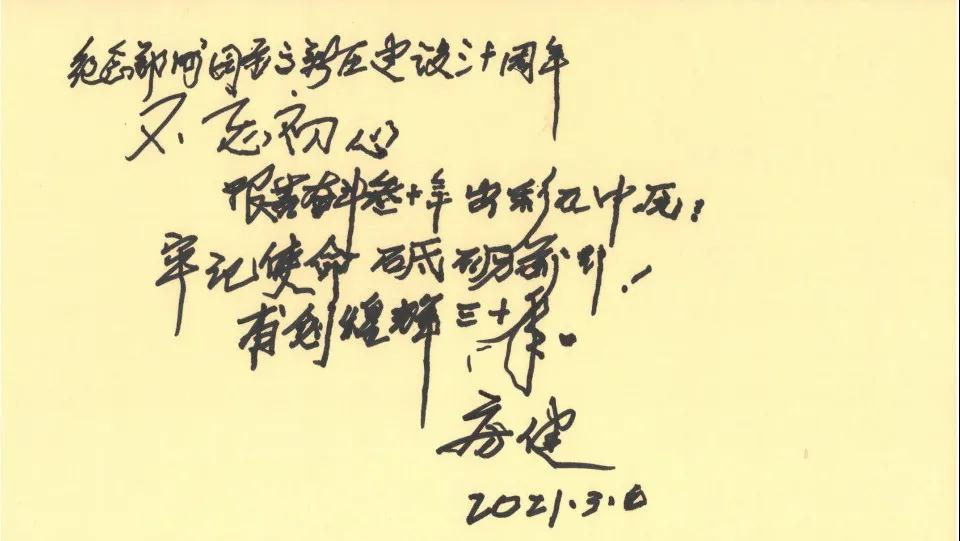 纪念郑州国家高新区建设三十周年
不忘初心
艰苦奋斗叁十年出彩在中原；
牢记使命 砥砺前行！
再创煌辉三十年。
房健
2021.3.6